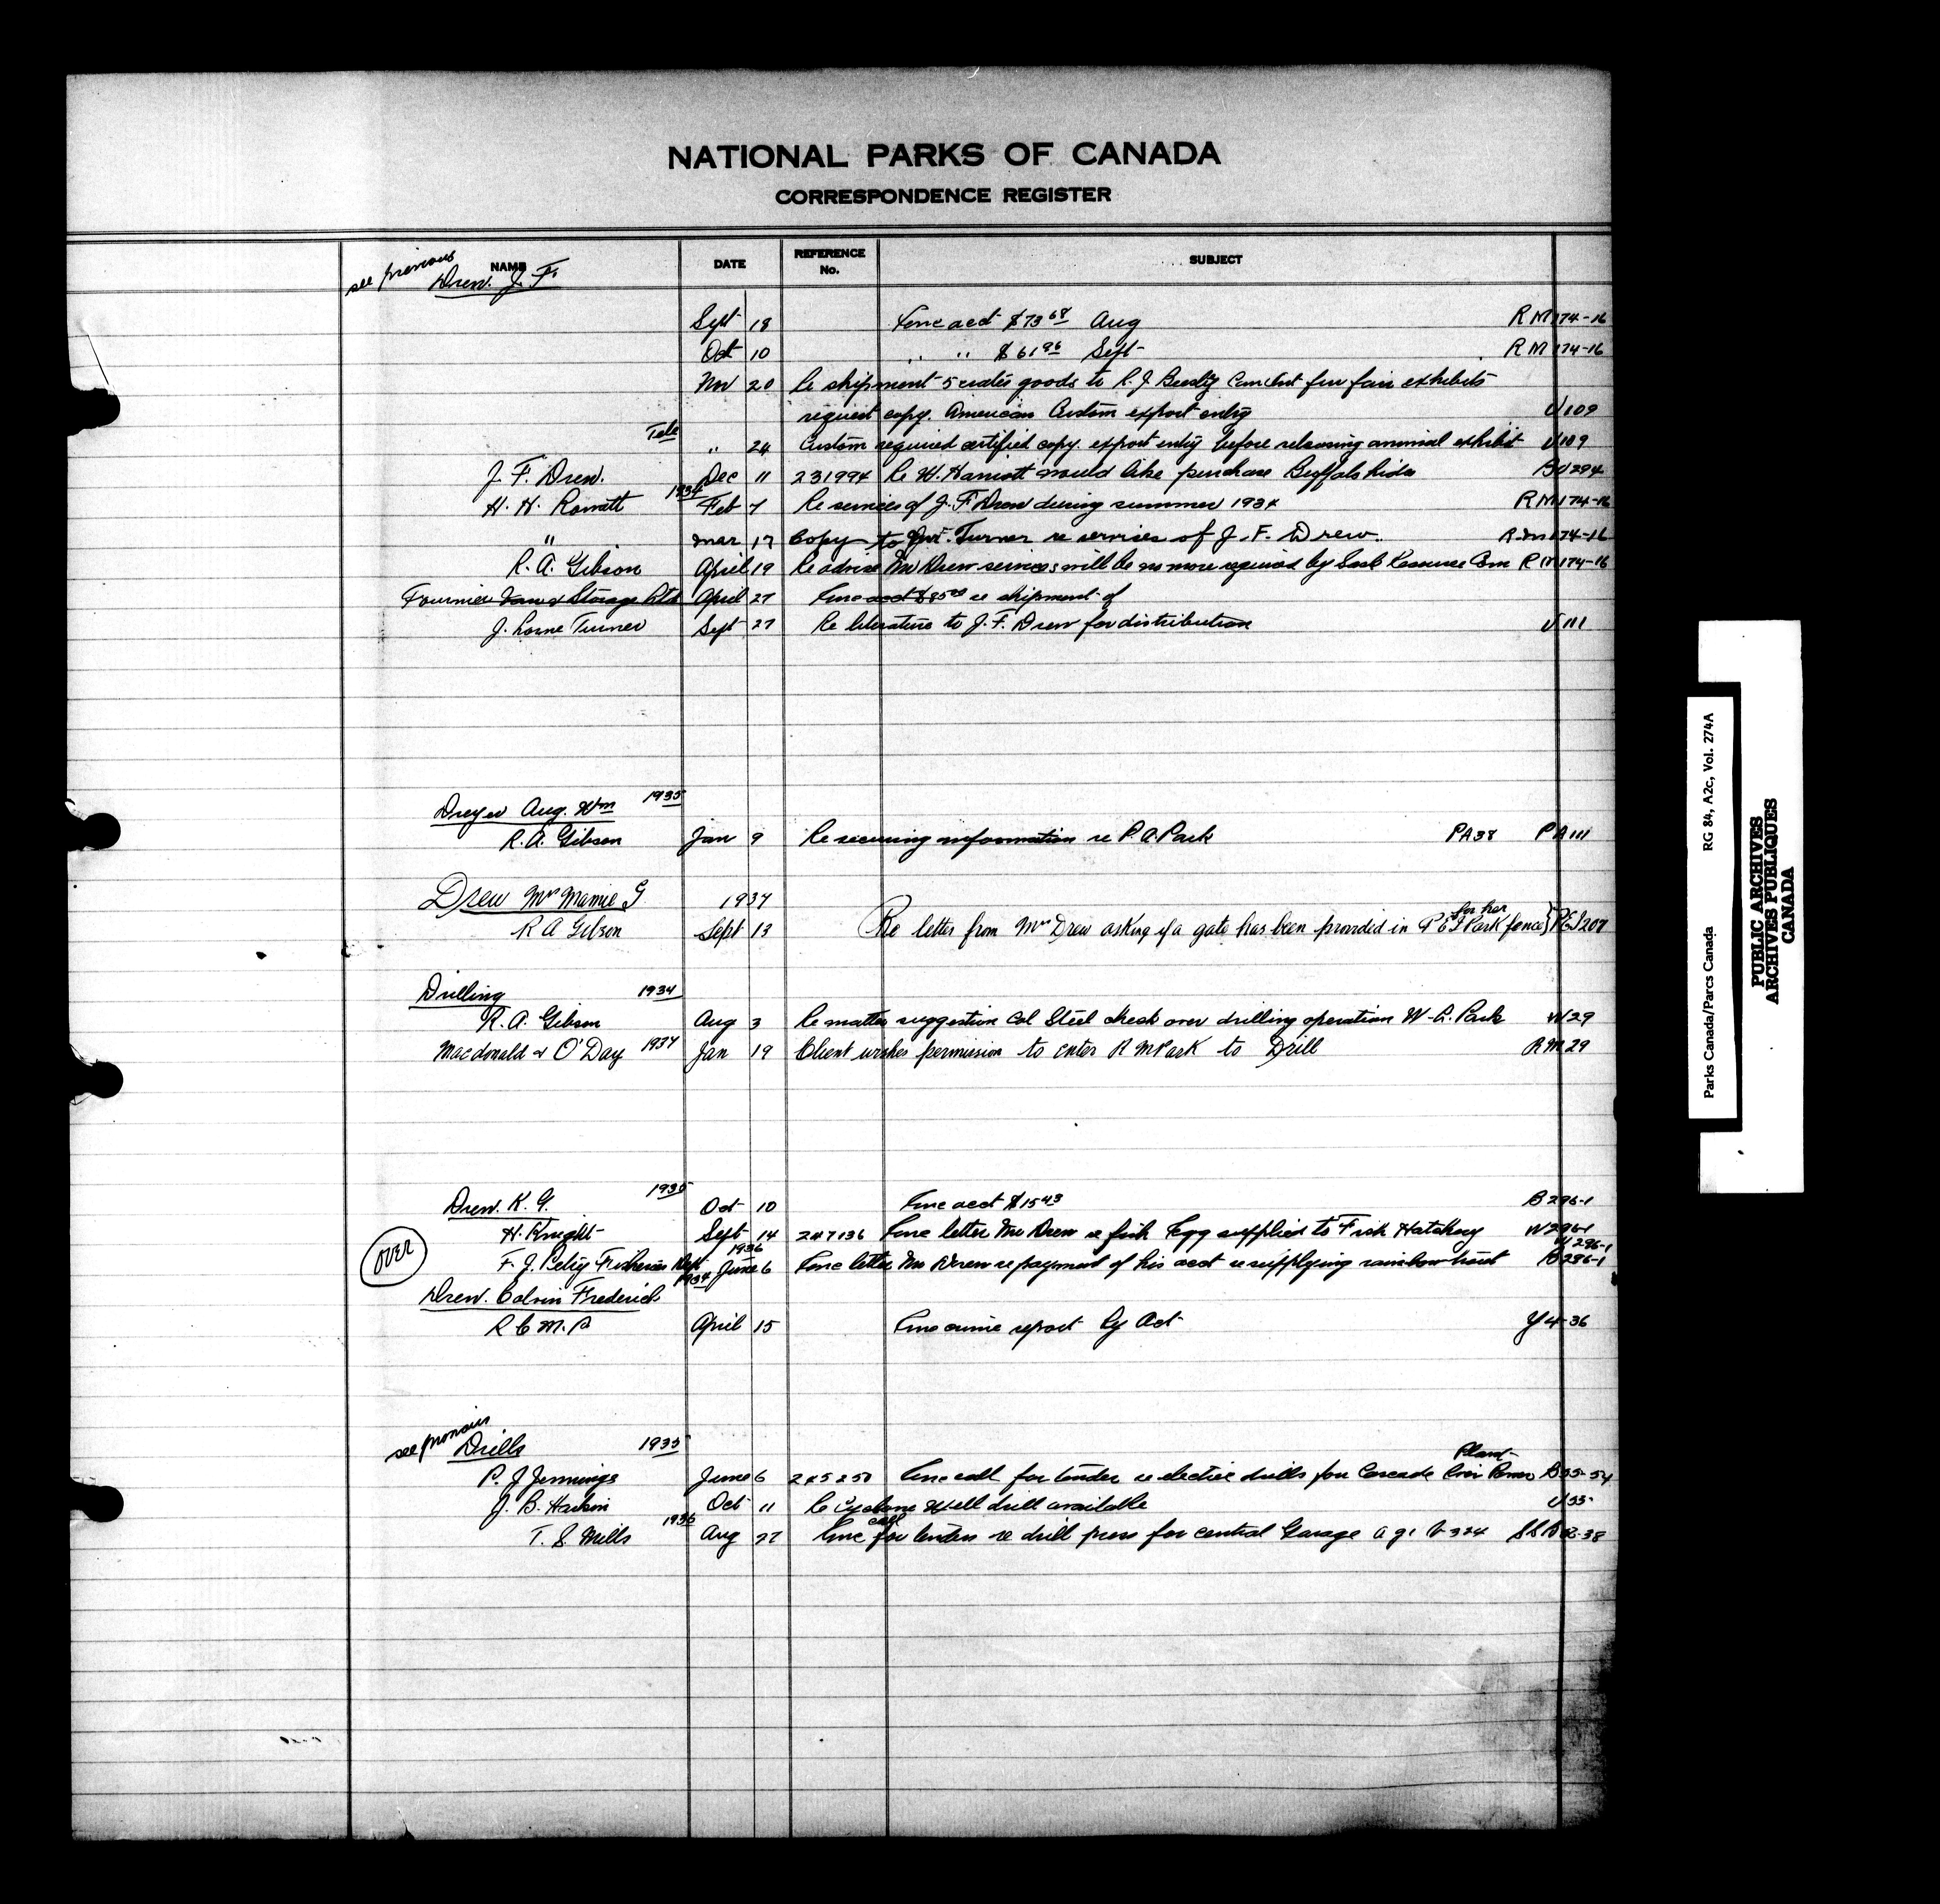 NATIONAL PARKS OF CANADA
CORRESPONDENCE REGISTER
NAME DATE REFERENCE No. SUBJECT
see previous
Drew. J. F.
Sept 18 Enc acct $73 68 Aug RM 174-16
Oct 10 " " $61 96 Sept RM 174-16
Nov 20 Re shipment 5 crates goods to R. J. fur fair exhibits
request copy. American Custom export entry U 109
Tele " 24 Custom required certified copy. export entry before releasing animal exhibit U 109
J. F. Drew. Dec 11 231994 Re W. Harriott would like purchase Buffalo hides BU 294
H. H. Rowatt 1934 Feb 7 Re services of J. F Drew during summer 1934 RM 174-16
" Mar 17 Copy to Turner re services of J. F. Drew. R.M 174-16
R. A. Gibson April 19 Re advise Mr Drew services will be no more required by RM 174-16
Fournier Van & Storage Ltd April 27 Enc acct $85 00 re shipment of
J. Lorne Turner Sept 27 Re literature to J. F. Drew for distribution U 111
Dreyer Aug. Wm 1935
R. A. Gibson Jan 9 Re securing information re P. A. Park PA 38 PA 111
Drew Mrs Mamie G 1937
R A Gibson Sept 13 Re letter from Mrs Drew asking if a gate has been provided for her in P E I Park fence} PEI 207
Drilling 1934
R. A. Gibson Aug 3 Re matter suggestion Col Steel check over drilling operation W-L. Park W 29
Macdonald & O'Day 1937 Jan 19 Client wishes permission to enter R M Park to Drill RM 29
Drew. K. G. 1935 Oct 10 Enc acct $15 43 B 296-1
H. Knight Sept 14 247136 Enc letter Mr Drew re fish Egg supplied to Fish Hatchery W 296-1
OVER
F. J. Fisheries Dept 1936 June 6 Enc letter Mr Drew re payment of his acct re supplying rainbow trout U 296-1 B 296-1
Drew. Calvin Frederick 1934
R C M. P April 15 Enc crime report Ry Act Y 4-36
see previous
Drills 1935
P. J Jennings June 6 245250 Enc call for tender re electric drills for Cascade River Power Plant B 35-54
J. B. Harkin Oct 11 Re Cyclone Well drill available U 35
T. S. Mills 1936 Aug 27 Enc call for tenders re drill press for central Garage
Parks Canada/Parcs Canada RG 84, A2c, Vol. 274A
PUBLIC ARCHIVES
ARCHIVES PUBLIQUES
CANADA